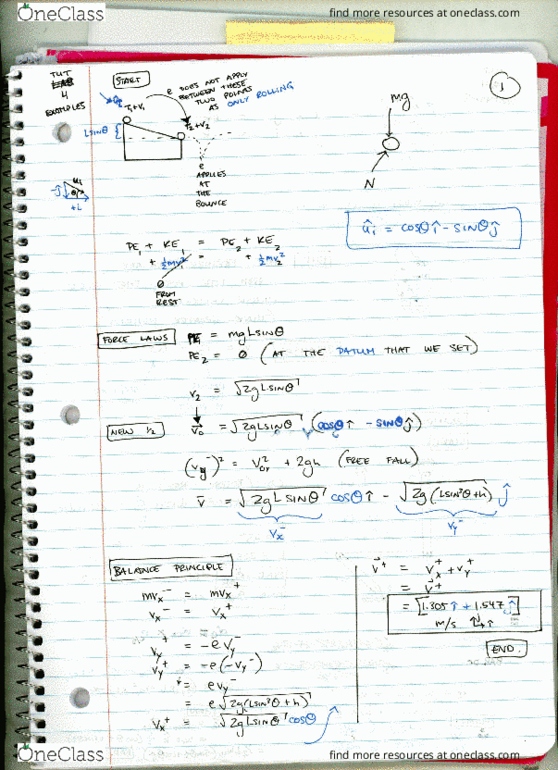 OneClass
find more resources at oneclass.com
TUT
4
EXAMPLES
START
e DOES NOT APPLY
BETWEEN THESE
TWO POINTS
AS ONLY ROLLING
1
T₁+V₁
T₂+V₂
LSINθ
mg
N
e
APPLIES
AT
THE
BOUNCE
u₁
θ
+L
û₁ = cosθ î - sinθ ĵ
PE₁ + KE₁ = PE₂ + KE₂
+ ½mv₁² = + ½mv₂²
0
FROM
REST
FORCE LAWS
PE₁ = mgLsinθ
PE₂ = 0 (AT THE DATUM THAT WE SET)
v₂ = √2gLsinθ
NEW 1/2
v₀ = √2gLsinθ (cosθ î - sinθ ĵ)
(vy⁻)² = v₀y² + 2gh (FREE FALL)
v̄ = √2gLsinθ cosθ î - √2g(Lsin³θ+h) ĵ
vx⁻
vy⁻
BALANCE PRINCIPLE
mvx⁻ = mvx⁺
vx⁻ = vx⁺
vy⁺ = -evy⁻
vy⁺ = -e(-vy⁻)
= evy⁻
= e√2g(Lsin³θ+h)
vx⁺ = √2gLsinθ cosθ
v⁺ = vx⁺ + vy⁺
= v⁺
= [1.305 î + 1.547 ĵ]
m/s
END.
OneClass
find more resources at oneclass.com